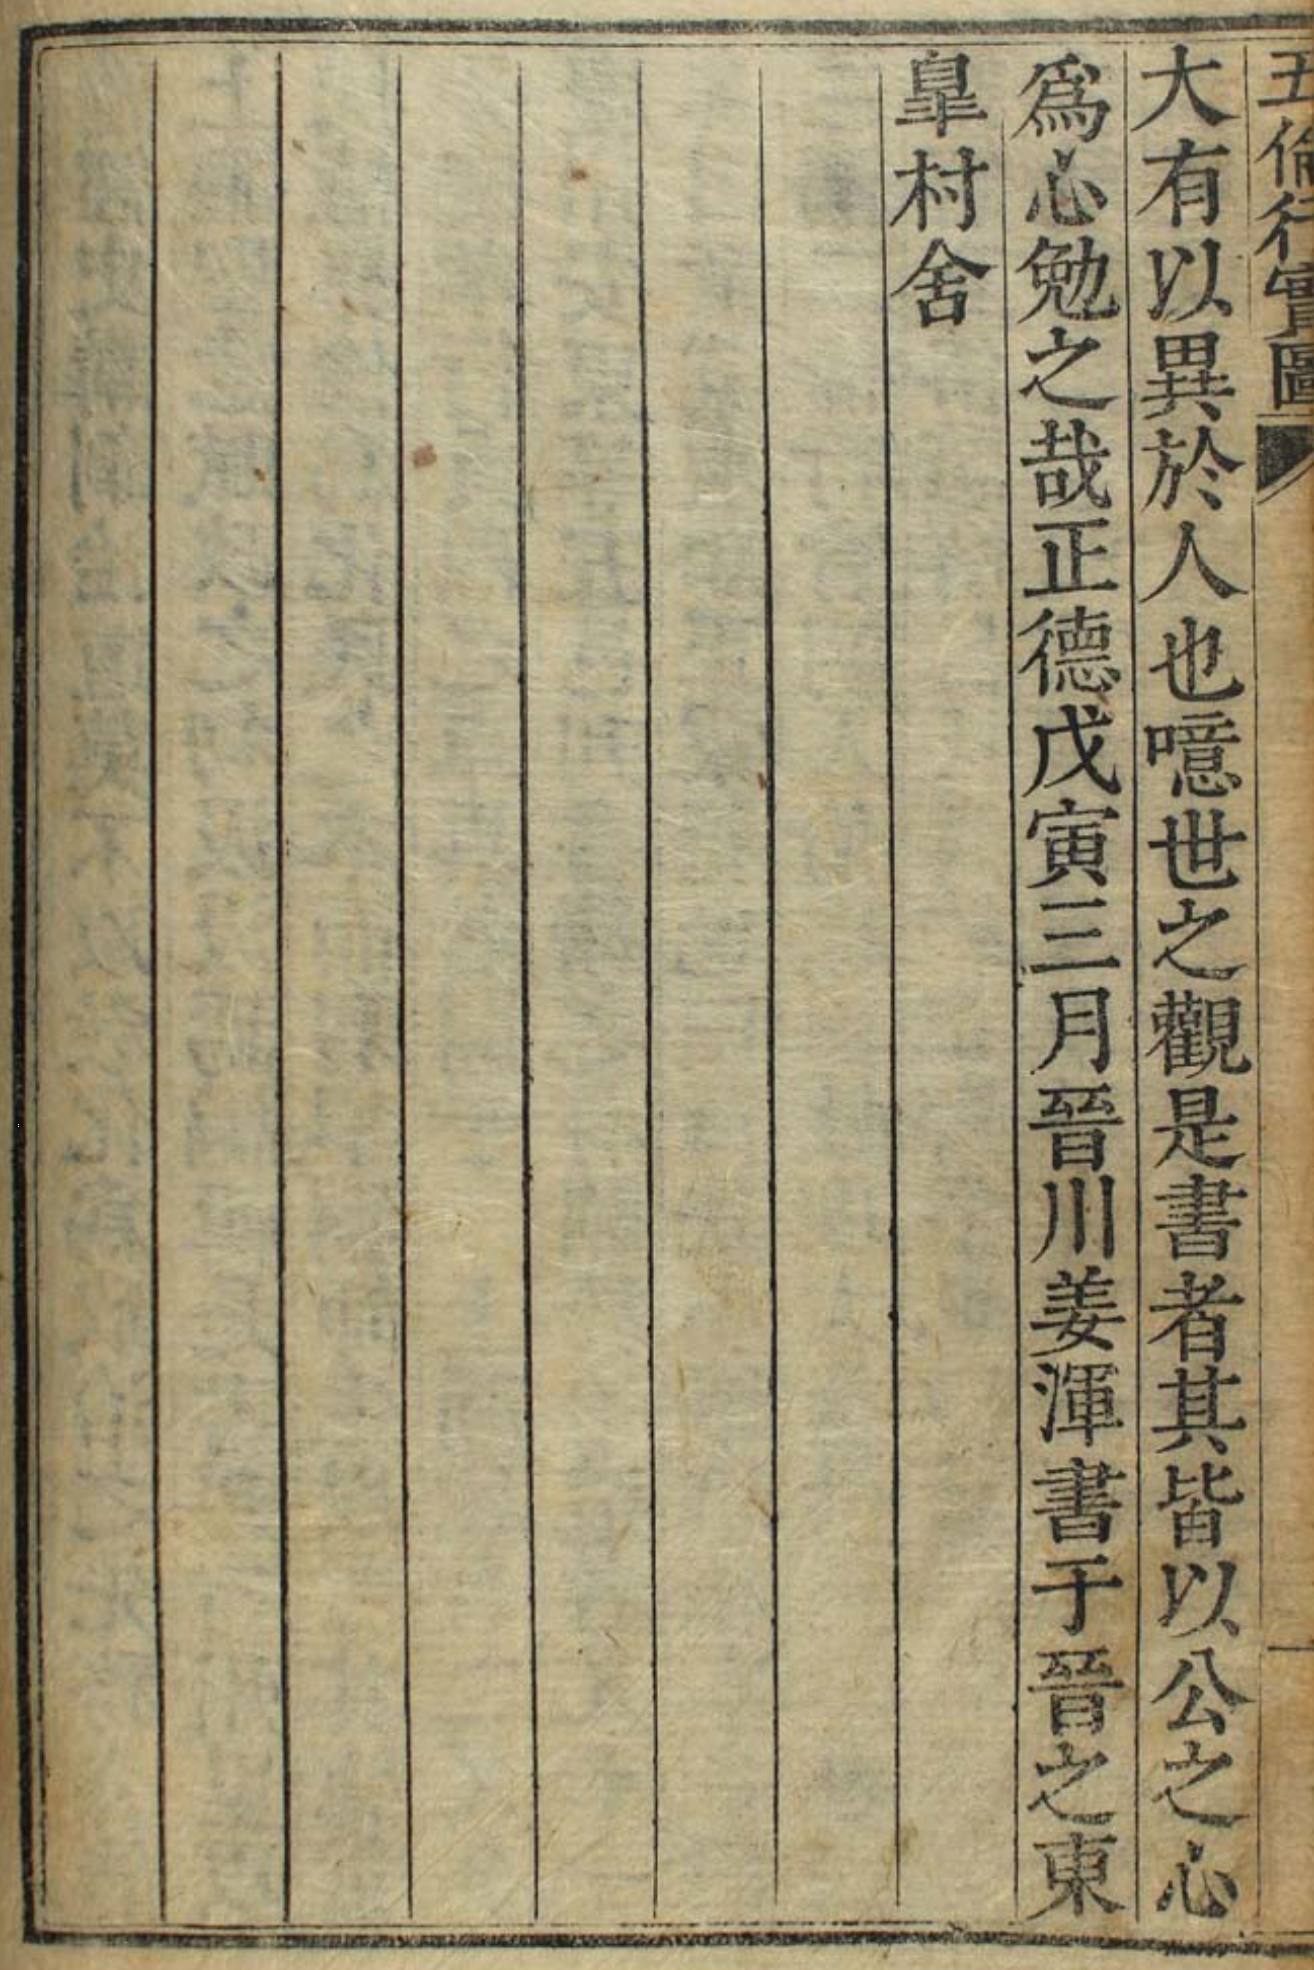 五倫行實圖
大有以異於人也噫世之觀是書者其皆以公之心
爲心勉之哉正德戊寅三月晉川姜渾書于晉之東
皐村舍